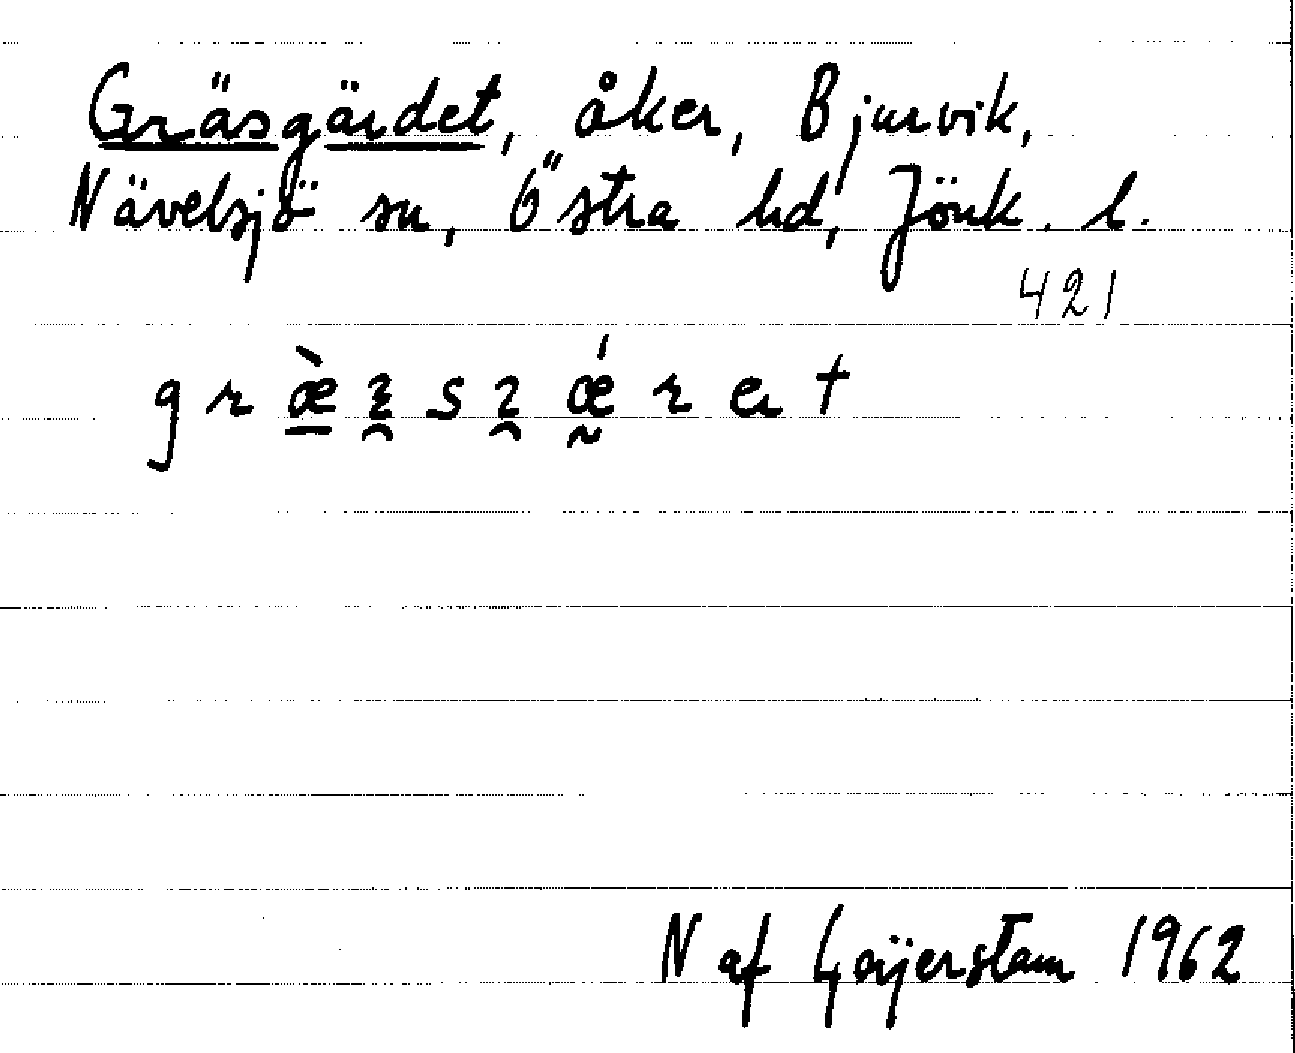 Gräsgärdet, åker, Bjurvik,
Nävelsjö sn, Östra hd, Jönk. l.
421
N af Geijerstam 1962